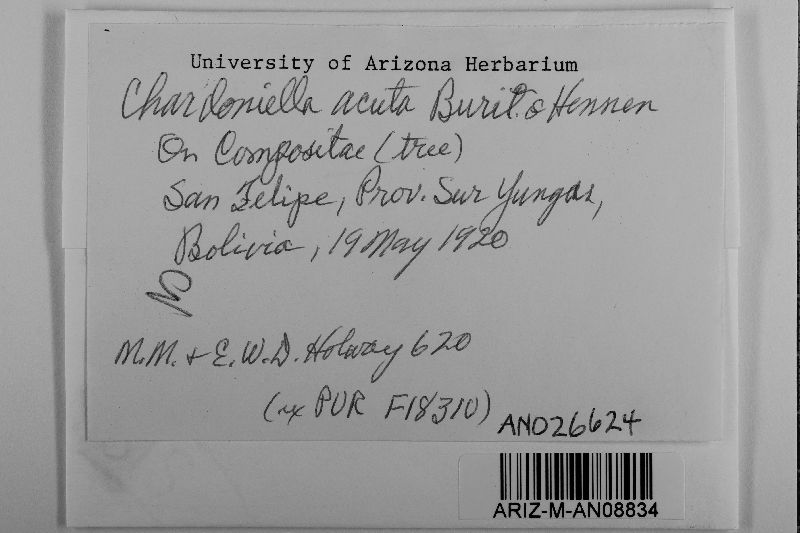 University of Arizona Herbarium
Chardoniella acuta Burit. & Hennen
On Compositae (tree)
San Felipe, Prov. Sur Yungas,
Bolivia, 19 May 1920
NO
M.M. + E.W.D. Holway 620
(ex PUR F18310)
AN026624
ARIZ-M-AN08834